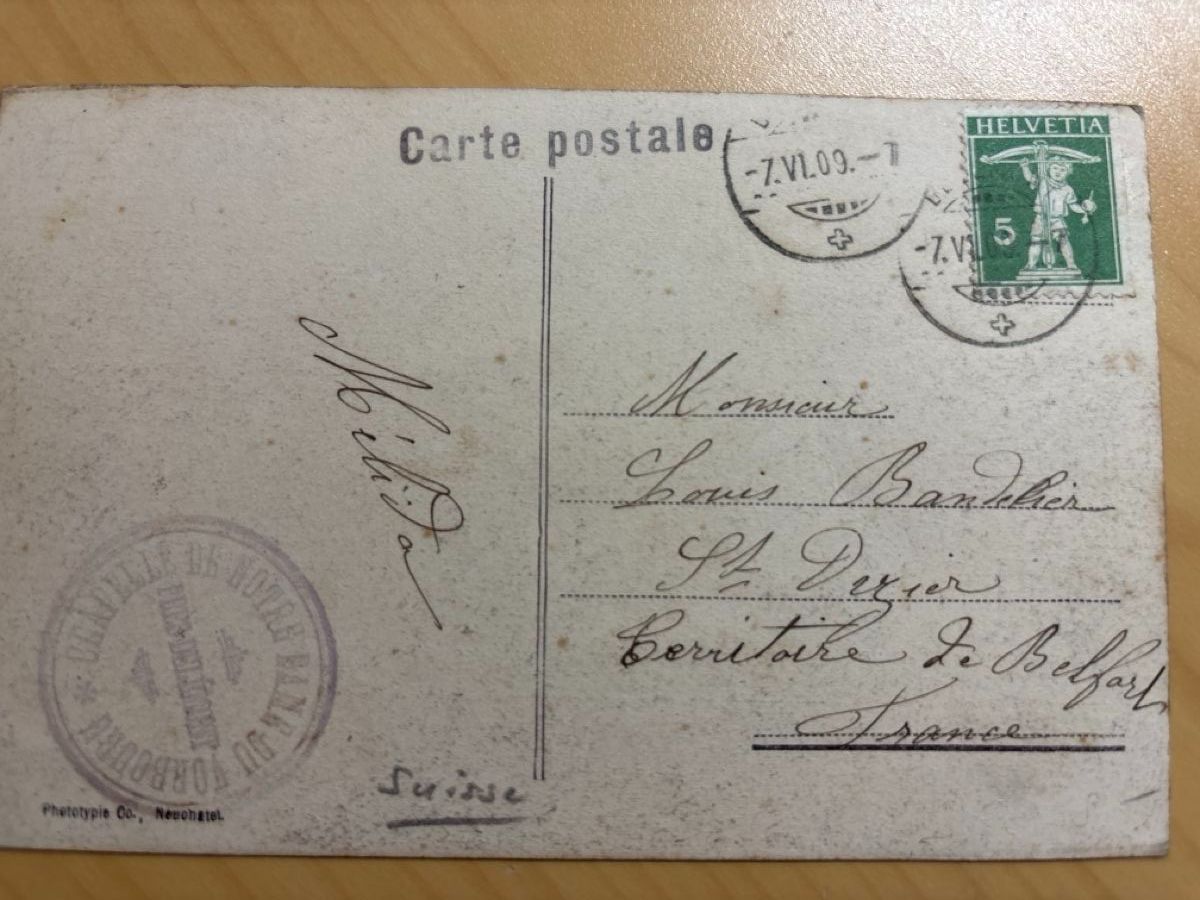 Carte postale
-7.VI.09.-
HELVETIA
5
-7.VI.09.-
Mélida
Monsieur
Louis Bandelier
St Dizier
Territoire de Belfort
France
* CHAPELLE DE NOTRE DAME DU VORBOURG
DELÉMONT
Suisse
Phototypie Co., Neuchatel.